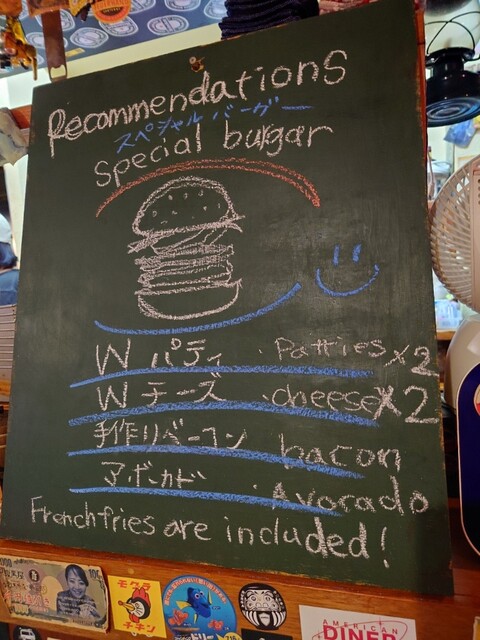 Recommendations
スペシャルバーガー
Special burgar
W パティ ・Patties×2
W チーズ ・cheese×2
手作りベーコン bacon
アボカド ・Avocado
French fries are included!
1000
モグラ
チキン
AMERICAN
DINER